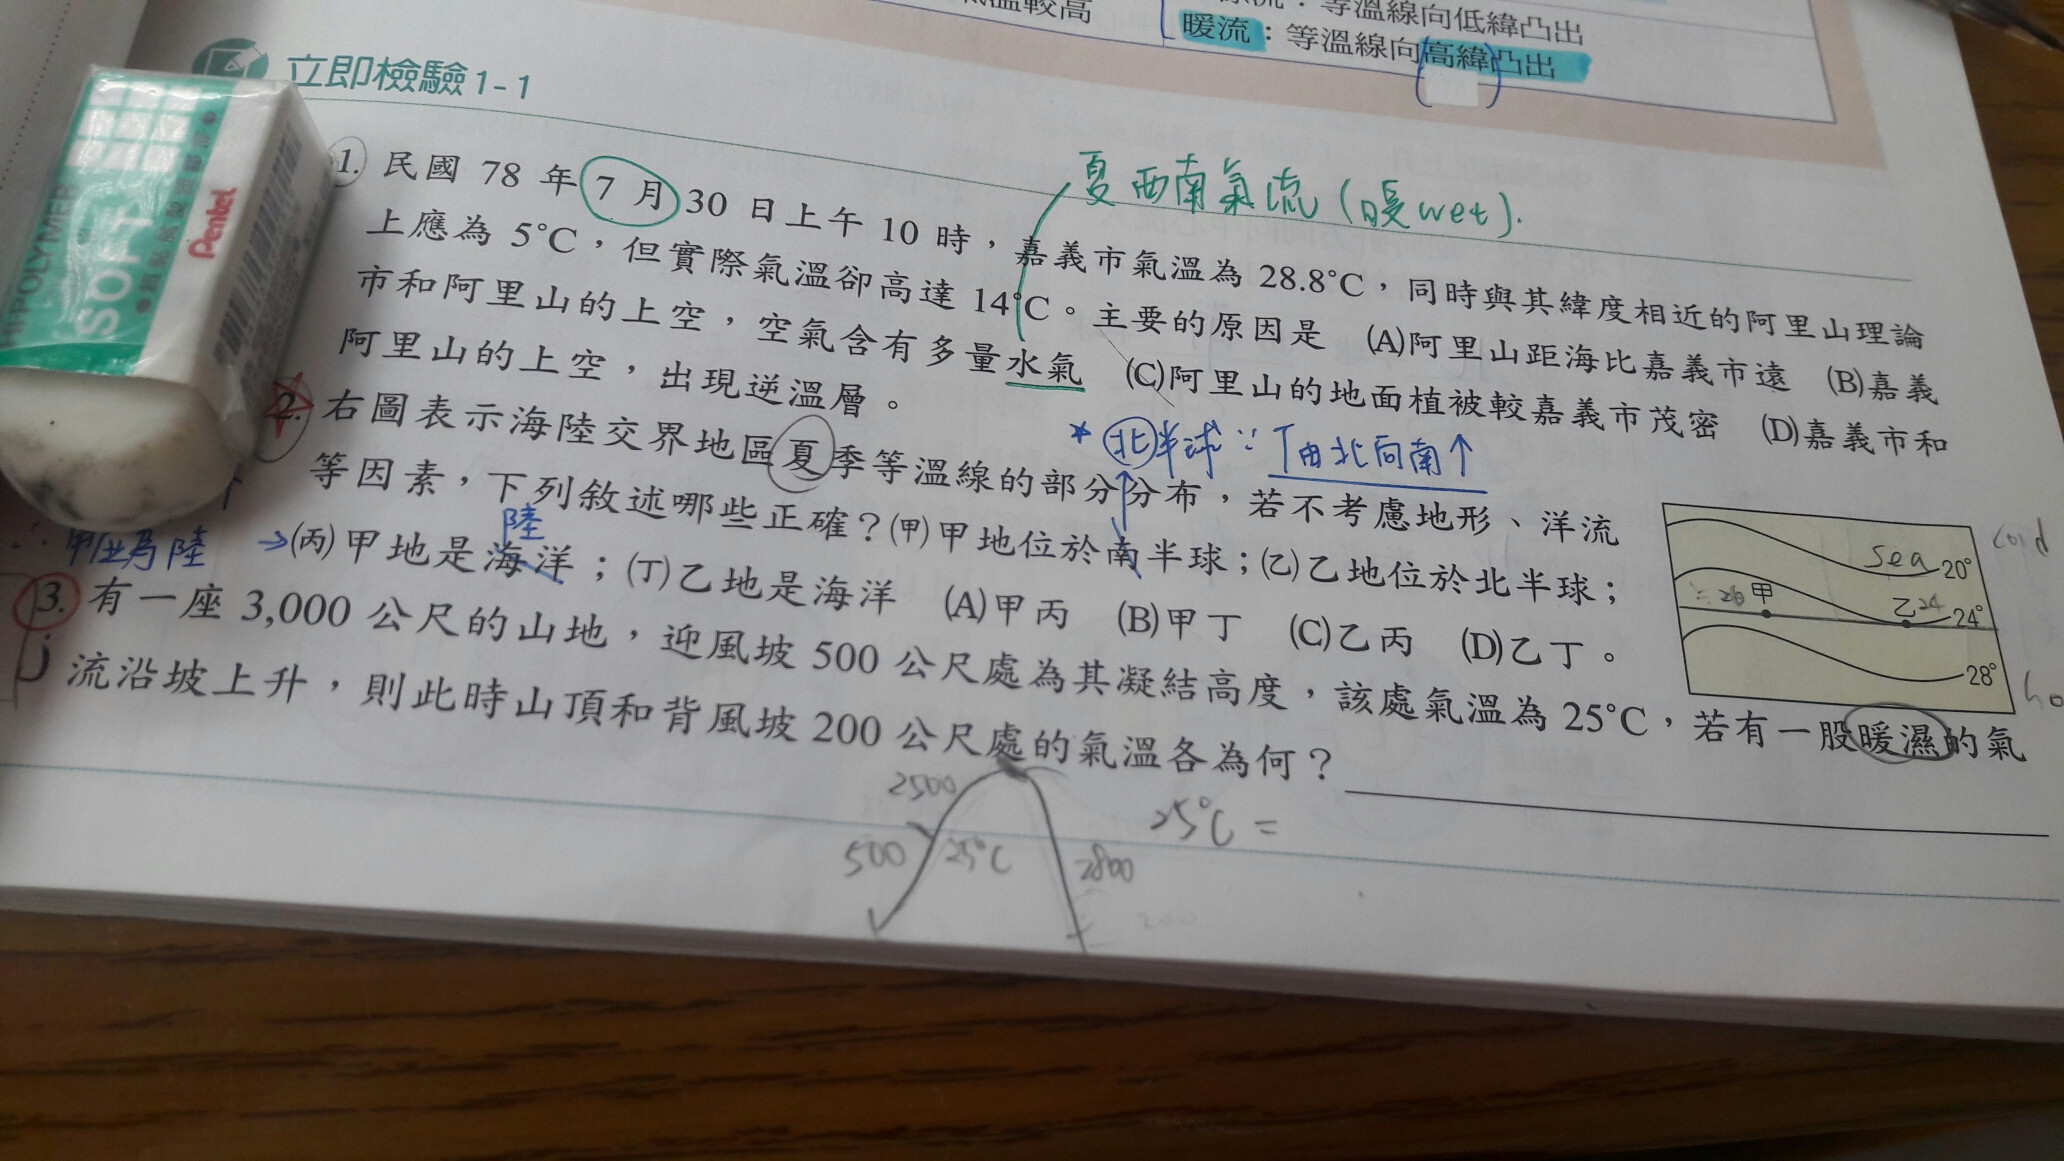 溫較高
流：等溫線向低緯凸出
暖流：等溫線向高緯凸出
立即檢驗1-1
夏西南氣流(暖wet).
1. 民國 78 年 7 月 30 日上午 10 時，嘉義市氣溫為 28.8°C，同時與其緯度相近的阿里山理論
上應為 5°C，但實際氣溫卻高達 14°C。主要的原因是 (A)阿里山距海比嘉義市遠 (B)嘉義
市和阿里山的上空，空氣含有多量水氣 (C)阿里山的地面植被較嘉義市茂密 (D)嘉義市和
阿里山的上空，出現逆溫層。
*北半球∵「由北向南↑
2. 右圖表示海陸交界地區夏季等溫線的部分分布，若不考慮地形、洋流
等因素，下列敘述哪些正確？(甲)甲地位於南半球；(乙)乙地位於北半球；
陸
為陸 →(丙)甲地是海洋；(丁)乙地是海洋 (A)甲丙 (B)甲丁 (C)乙丙 (D)乙丁。
cold
sea 20°
26 甲
乙 24 24°
28°
ho
3. 有一座 3,000 公尺的山地，迎風坡 500 公尺處為其凝結高度，該處氣溫為 25°C，若有一股暖濕的氣
流沿坡上升，則此時山頂和背風坡 200 公尺處的氣溫各為何？
2500
25°C =
500 25°C 2800
200
HI-POLYMER
SOFT
Pentel